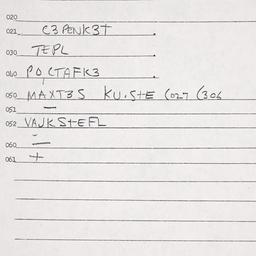 020
021 C3PENK3T .
030 TEPL .
040 PO,CTAFK3 .
050 MAXT3S KU.STE (027 (306
051 —
052 VAJKSTEFL
-
060 —
061 +